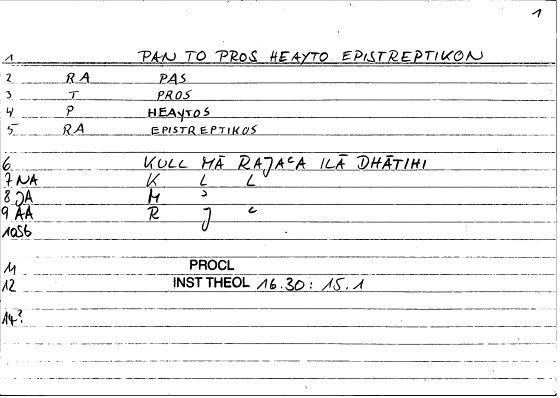 1
1 PAN TO PROS HEAYTO EPISTREPTIKON
2 RA PAS
3 T PROS
4 P HEAYTOS
5 RA EPISTREPTIKOS
6 KULL MĀ RAJAᶜA ILĀ DHĀTIHI
7 NA K L L
8 JA M
9 AA R J ᶜ
10 Sb
11 PROCL
12 INST THEOL 16.30: 15.1
14?